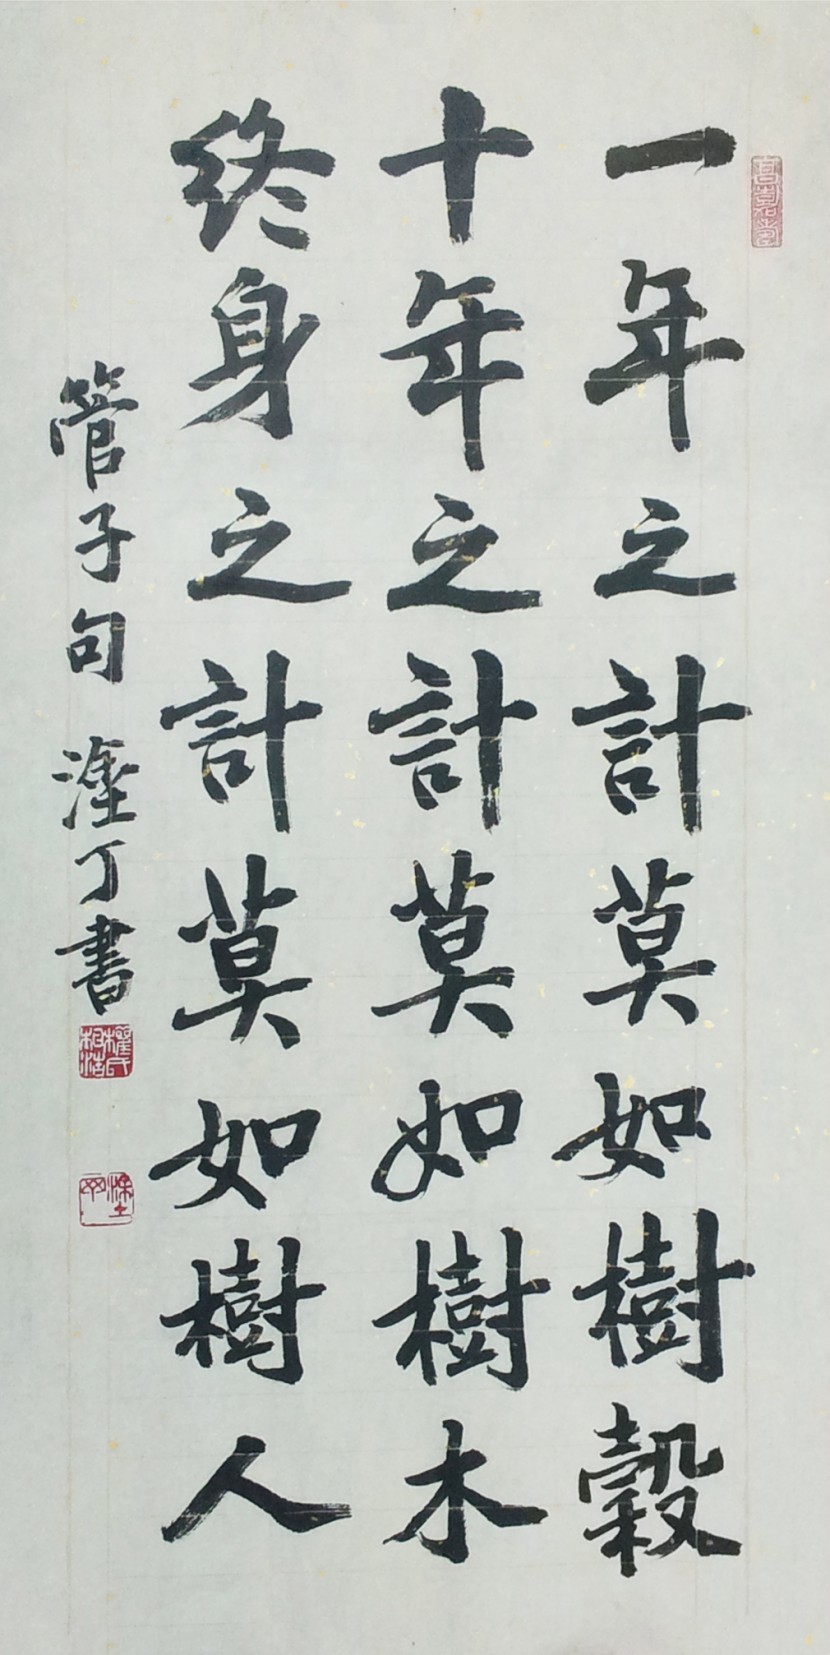 一年之計莫如樹穀
十年之計莫如樹木
終身之計莫如樹人
管子句 塗丁書